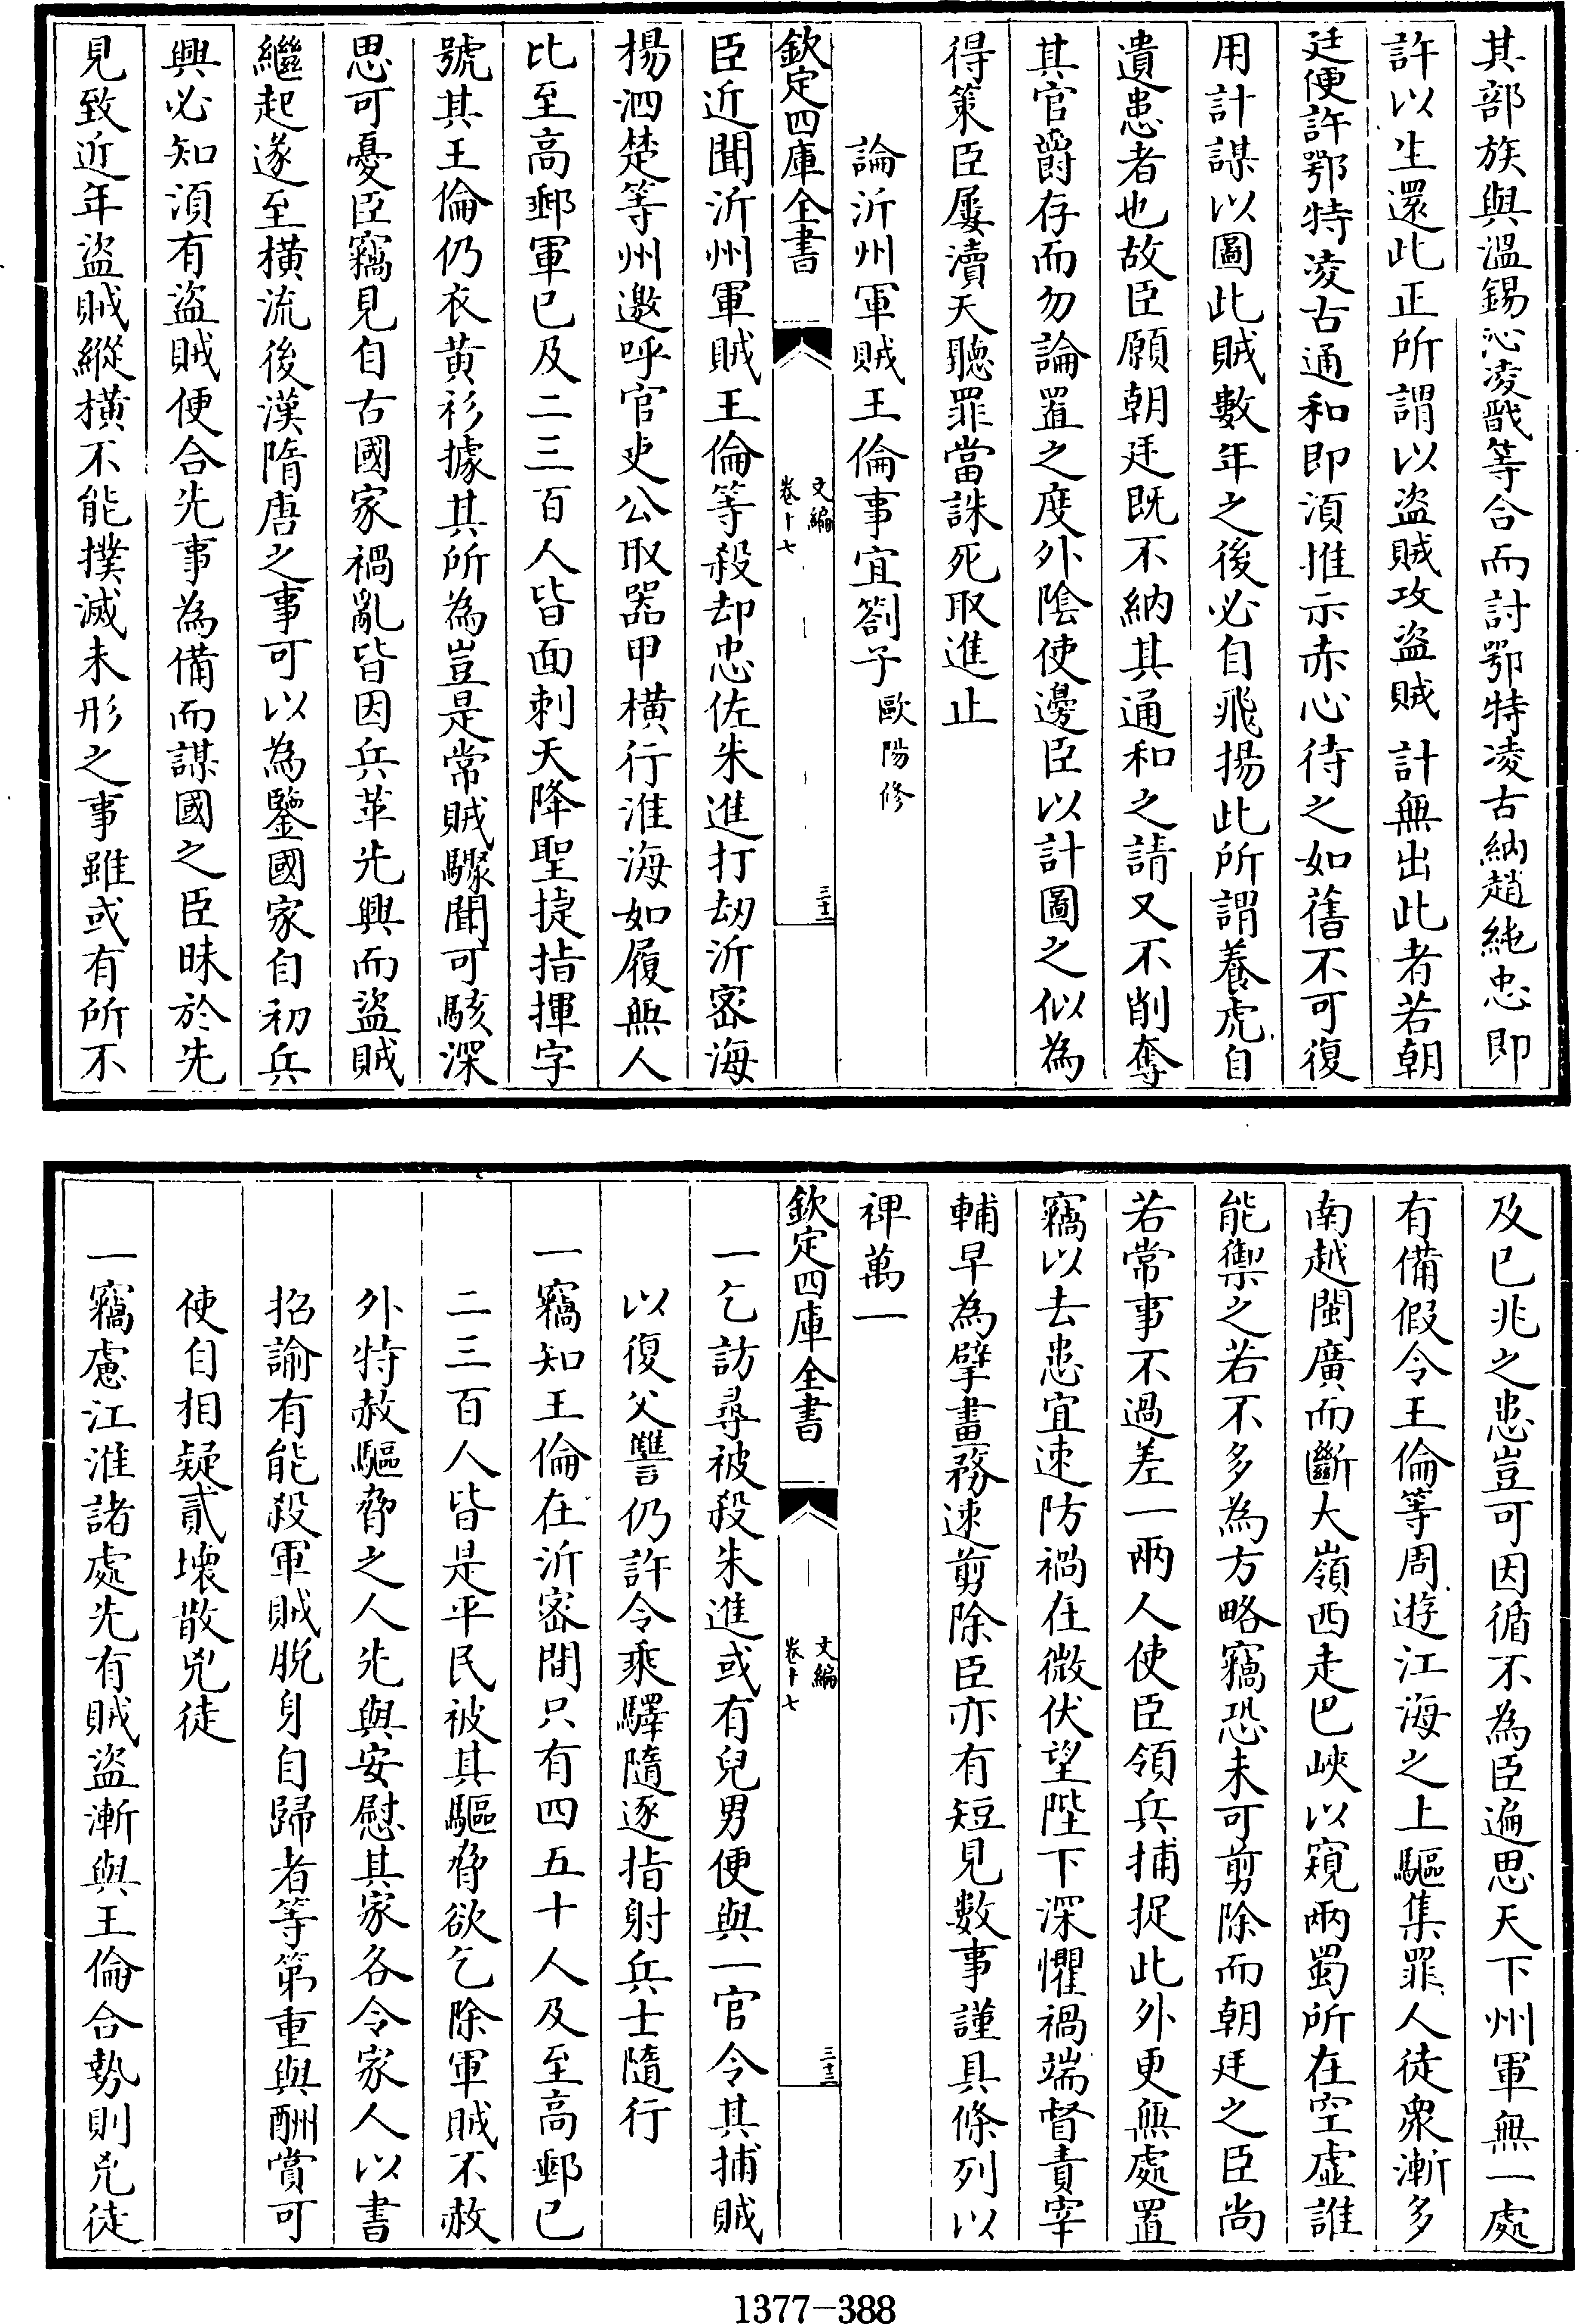 其部族與溫錫沁凌戬等合而討鄂特凌古納趙純忠即
許以生還此正所謂以盜賊攻盜賊計無出此者若朝
廷便許鄂特凌古通和即須推示赤心待之如舊不可復
用計謀以圖此賊數年之後必自飛揚此所謂養虎自
遺患者也故臣願朝廷既不納其通和之請又不削奪
其官爵存而勿論置之度外陰使邊臣以計圖之似為
得策臣屢瀆天聽罪當誅死取進止
論沂州軍賊王倫事宜劄子 歐陽修
欽定四庫全書
文編
卷十七
三十二
臣近聞沂州軍賊王倫等殺却忠佐朱進打劫沂密海
楊泗楚等州邀呼官吏公取器甲橫行淮海如履無人
比至高郵軍已及二三百人皆面刺天降聖捷指揮字
號其王倫仍衣黄衫據其所為豈是常賊驟聞可駭深
思可憂臣竊見自古國家禍亂皆因兵革先興而盜賊
繼起遂至橫流後漢隋唐之事可以為鑒國家自初兵
興必知須有盜賊便合先事為備而謀國之臣昧於先
見致近年盜賊縱橫不能撲滅未形之事雖或有所不
及已兆之患豈可因循不為臣遍思天下州軍無一處
有備假令王倫等周遊江海之上驅集罪人徒衆漸多
南越閩廣而斷大嶺西走巴峽以窺兩蜀所在空虛誰
能禦之若不多為方略竊恐未可剪除而朝廷之臣尚
若常事不過差一兩人使臣領兵捕捉此外更無處置
竊以去患宜速防禍在微伏望陛下深懼禍端督責宰
輔早為擘畫務速剪除臣亦有短見數事謹具條列以
裨萬一
欽定四庫全書
文編
卷十七
三十三
一乞訪尋被殺朱進或有兒男便與一官令其捕賊
以復父讐仍許令乘驛隨逐指射兵士隨行
一竊知王倫在沂密間只有四五十人及至高郵已
二三百人皆是平民被其驅脅欲乞除軍賊不赦
外特赦驅脅之人先與安慰其家各令家人以書
招諭有能殺軍賊脫身自歸者等第重與酬賞可
使自相疑貳壞散兇徒
一竊慮江淮諸處先有賊盜漸與王倫合勢則兇徒
1377-388